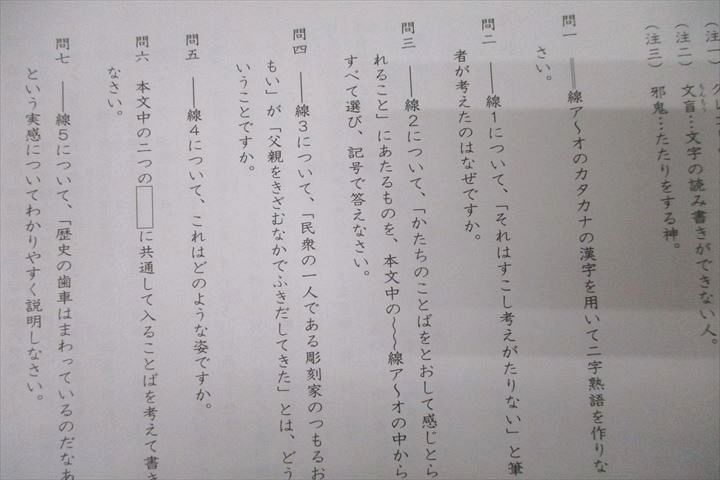 (注一)
(注二) 文盲…文字の読み書きができない人。
もんもう
(注三) 邪鬼…たたりをする神。
問一 ══線ア〜オのカタカナの漢字を用いて二字熟語を作りな
さい。
問二 ――線1について、「それはすこし考えがたりない」と筆
者が考えたのはなぜですか。
問三 ――線2について、「かたちのことばをとおして感じとら
れること」にあたるものを、本文中の〜〜線ア〜オの中から
すべて選び、記号で答えなさい。
問四 ――線3について、「民衆の一人である彫刻家のつもるお
もい」が「父親をきざむなかでふきだしてきた」とは、どう
いうことですか。
問五 ――線4について、これはどのような姿ですか。
問六 本文中の二つの□に共通して入ることばを考えて書き
なさい。
問七 ――線5について、「歴史の歯車はまわっているのだなあ
という実感についてわかりやすく説明しなさい。